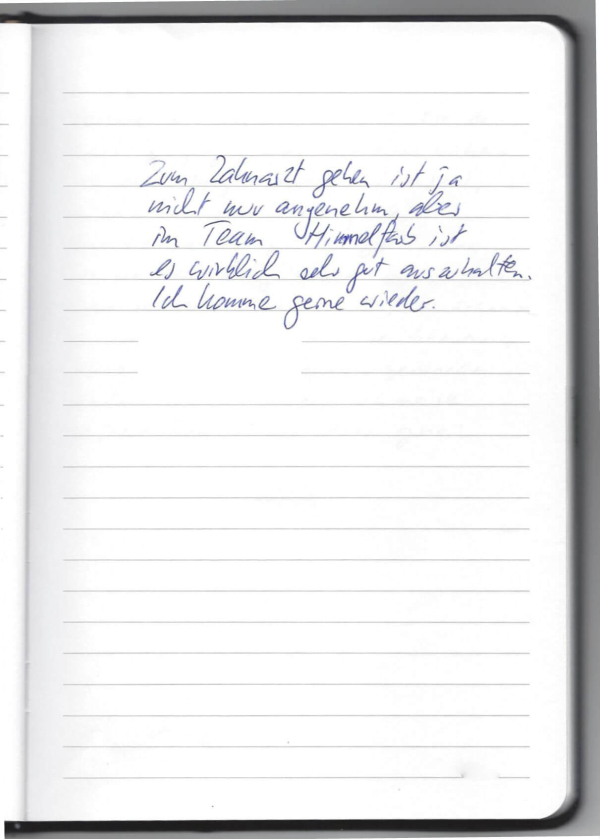 Zum Zahnarzt gehen ist ja
nicht nur angenehm, aber
im Team Himmelfarb ist
es wirklich sehr gut auszuhalten.
Ich komme gerne wieder.